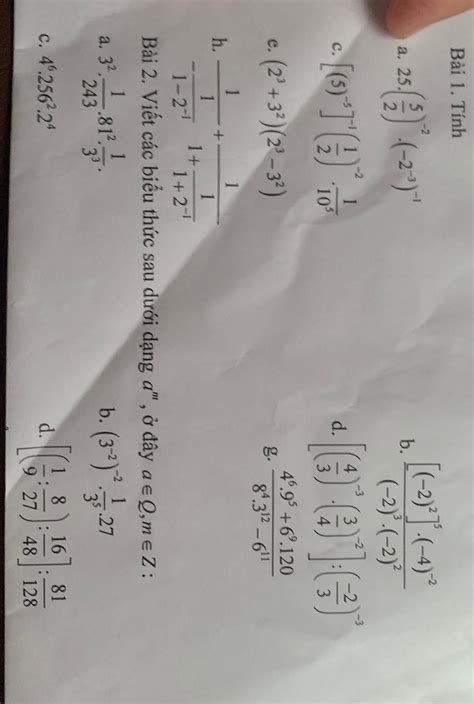 Bài 1. Tính
a. 25.(5/2)^-2.(-2^-3)^-1 b. [(-2)^2]^5.(-4)^-2 / (-2)^3.(-2)^2
c. [(5)^-5]^-1.(1/2)^-2.1/10^5 d. [(4/3)^-3.(3/4)^-2]:(-2/3)^-3
e. (2^3+3^2)(2^3-3^2) g. (4^6.9^5+6^9.120)/(8^4.3^12-6^11)
h. 1/(-1/(1-2^-1)) + 1/(1+1/(1+2^-1))
Bài 2. Viết các biểu thức sau dưới dạng a^m, ở đây a∈Q, m∈Z:
a. 3^2.1/243.81^2.1/3^3. b. (3^-2)^-2.1/3^5.27
c. 4^6.256^2.2^4 d. [(1/9:8/27):16/48]:81/128